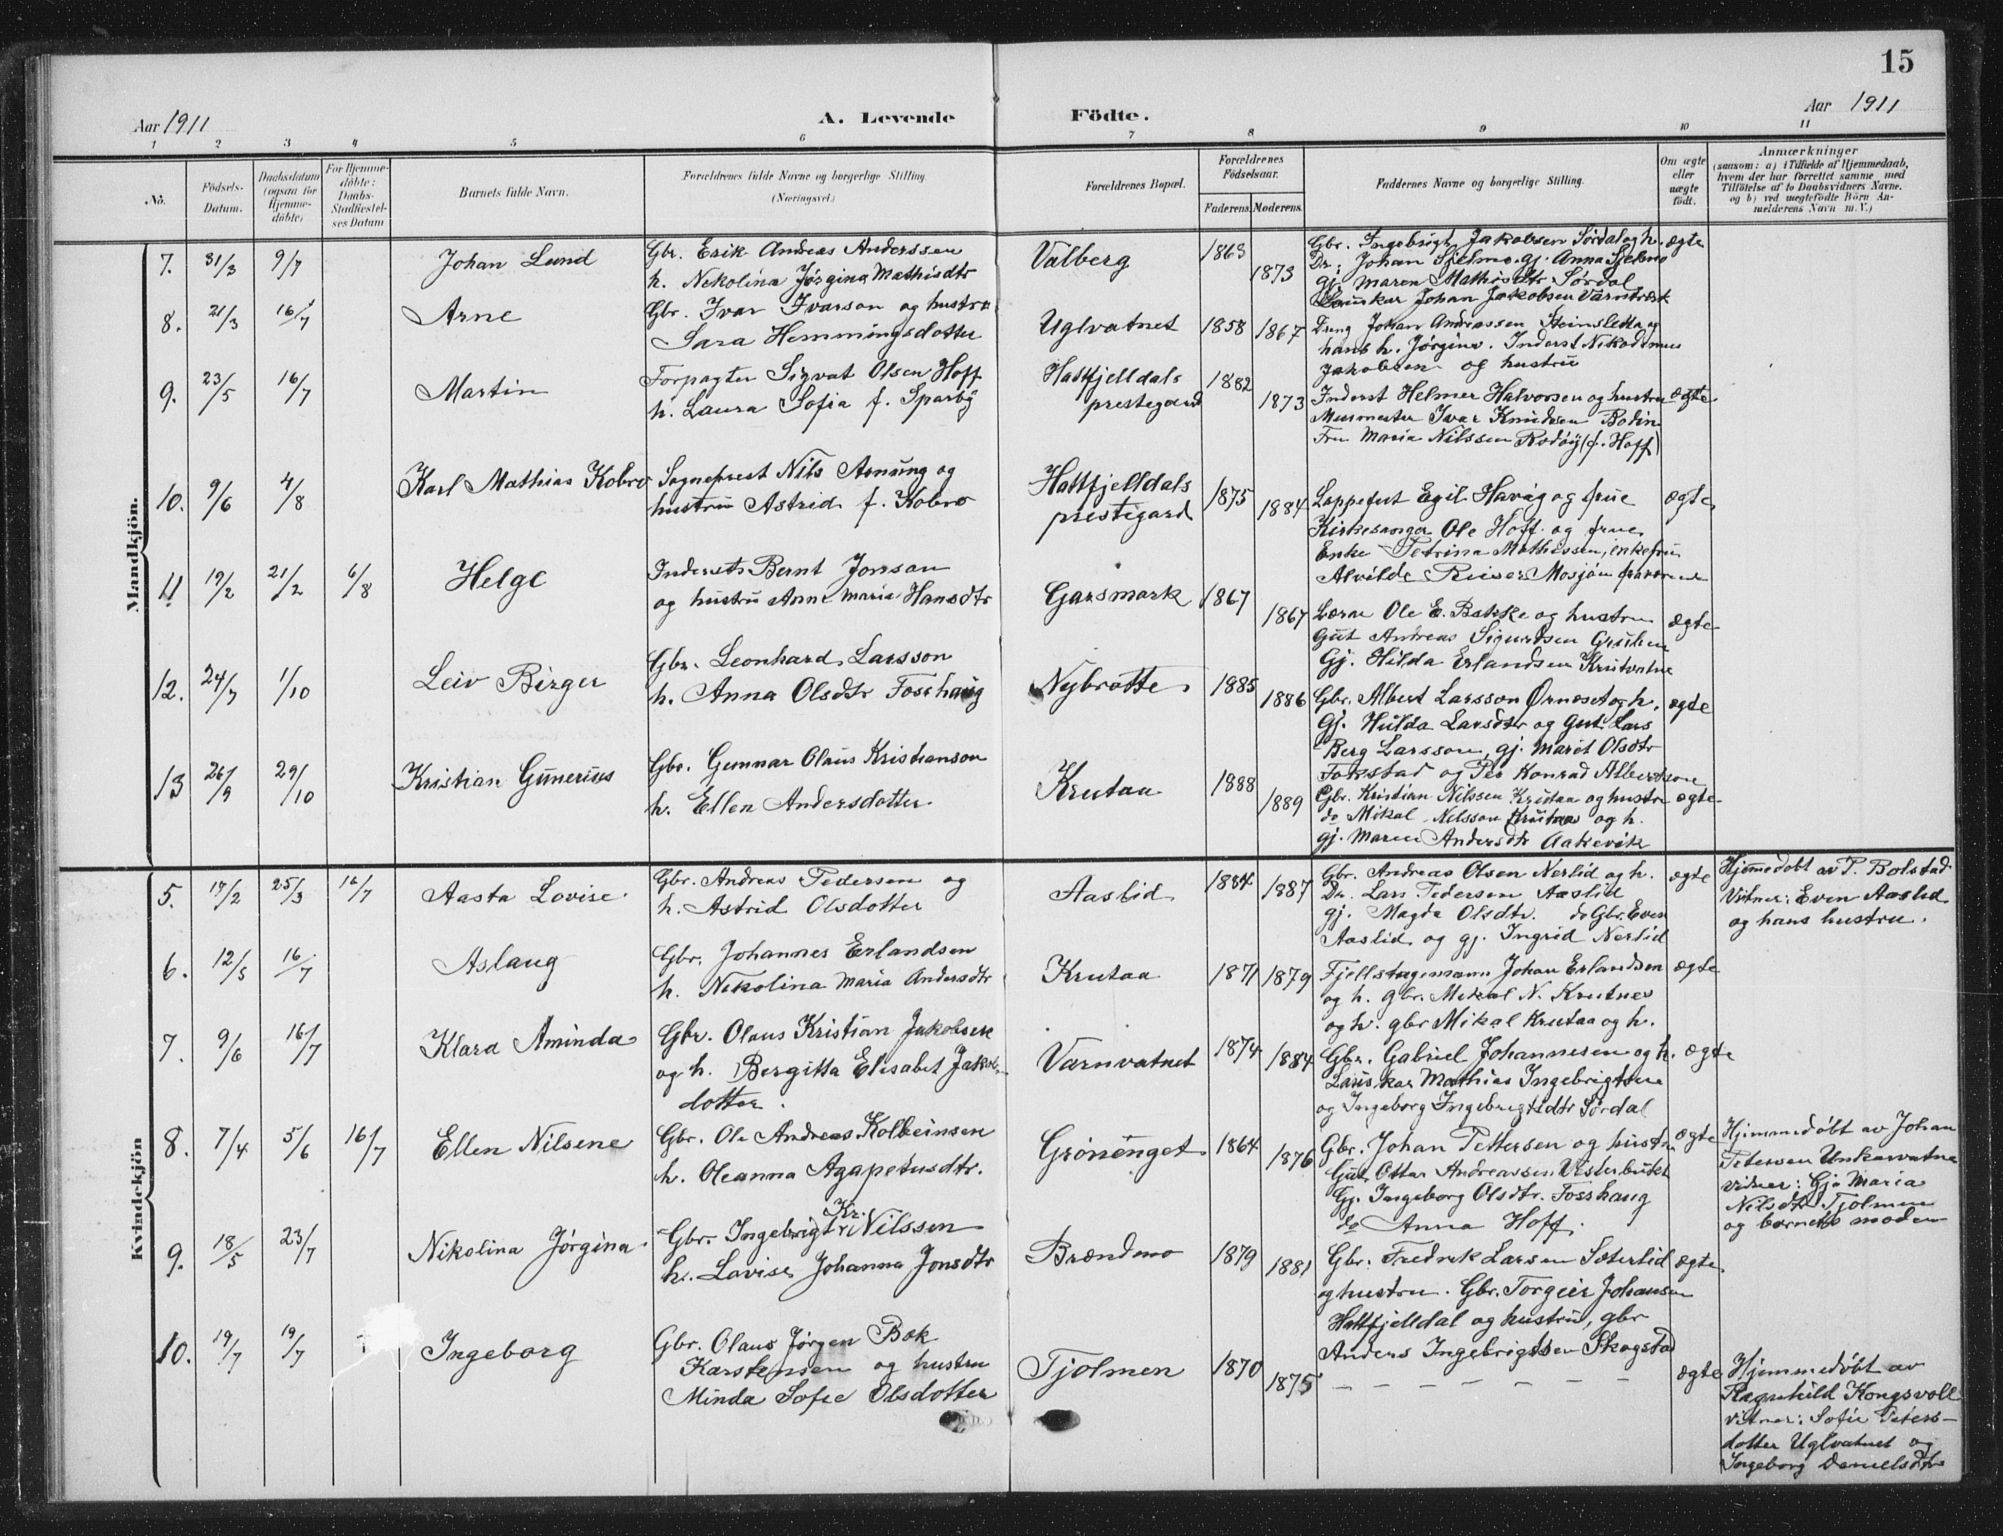 15
Aar 1911
A. Levende Födte.
Aar 1911
1 2 3 4 5 6 7 8 9 10 11
No.
Födsels-Datum.
Daabsdatum (ogsaa for Hjemme-döbte)
For Hjemme-döbte: Daabs-Stadfæstel-ses Datum
Barnets fulde Navn.
Forældrenes fulde Navne og borgerlige Stilling (Næringsvei.)
Forældrenes Bopæl.
Forældrenes Födselsaar.
Faderens. Moderens.
Faddernes Navne og borgerlige Stilling.
Om ægte eller uægte födt.
Anmærkninger (saasom: a) i Tilfælde af Hjemmedaab, hvem der har forrettet samme, med Tilföielse af to Daabsvidners Navne, og b) ved uægtefödte Börn An-melderens Navn m.V.)
Mandkjön.
7. 31/3 9/7 Johan Lund
Gbr. Erik Andreas Anderssen
h. Nekolina Jørgina Mathisdtr
Valberg 1863 1873
Gbr. Ingebrigt Jakobsen Sørdal og h.
Dr. Johan Sjelmo. gj. Anna Sjelmo
gj. Maren Mathisdtr Sørdal
Lauskar Johan Jakobsen Varntræsk
ægte
8. 21/3 16/7 Arne
Gbr. Ivar Ivarson og hustru
Sara Hemmingsdotter
Uglvatnet 1858 1867
Dung Johan Andreassen Steinsletta og
hans h. Jørgine. Inderst Nikodemus
Jakobsen og hustru
9. 23/5 16/7 Martin
Forpagter Sigvat Olsen Hoff
h. Laura Sofia f. Sparby
Hattfjelldals
prestegard
1882 1873
Inderst Helmer Halvorsen og hustru
Murmester Ivar Knudsen Bodin
Fru Maria Nilssen Rødøy (f. Hoff)
ægte
10. 9/6 4/8 Karl Mathias Kobro
Sogneprest Nils Arnung og
hustru Astrid f. Kobro
Hattfjelldals
prestegard
1875 1884
Lappefut Egil Havåg og frue
Kirkesanger Ole Hoff og frue
Enke Petrina Mathissen, enkefru
Alvilde Reiser Mosjøen fraværende
ægte
11 19/2 21/2 6/8 Helge
Inderst Bernt Jonson
og hustru Anne Maria Hansdtr
Garsmark 1867 1867
Lærar Ole E. Bakke og hustru
Gut Andreas Sigurdsen Gruben
Gj. Hilda Erlandsen Krutvatne
ægte
12. 24/7 1/10 Leiv Birger
Gbr. Leonhard Larsson
h. Anna Olsdtr Fosshaug
Nybrotte 1885 1886
Gbr. Albert Larsson Ørneset og h.
Gj. Hulda Larsdtr og gut Lars
Berg Larsson, gj. Marit Olsdtr
Fokstad og Per Konrad Albertson
ægte
13 26/9 29/10 Kristian Gunerius
Gbr. Gunnar Olaus Kristianson
h. Ellen Andersdotter
Krutaa 1888 1889
Gbr. Kristian Nilssen Krutaa og hustru
do Mikal Nilsson Krutaa og h.
gj. Maren Andersdtr Aakrevik
ægte
Kvindekjön
5. 17/2 25/3 16/7 Aasta Lovise
Gbr. Andreas Pedersen og
h. Astrid Olsdotter
Aaslid 1884 1887
Gbr. Andreas Olsen Nerlid og h.
Dr. Lars Pedersen Aaslid
gj. Magda Olsdtr. do Gbr. Even
Aaslid og gj. Ingrid Nerlid
ægte
Hjemmedøbt av P. Bolstad
Vitner: Even Aaslid
og hans hustru.
6. 12/5 16/7 Aslaug
Gbr. Johannes Erlandsen
h. Nikolina Maria Andersdtr
Krutaa 1871 1879
Fjellstuemann Johan Erlandsen
og h. gbr. Mikal N. Krutnes
og h. gbr Mikal Krutaa og h.
ægte
7. 9/6 16/7 Klara Aminda
Gbr. Olaus Kristian Jakobsen
og h. Bergitta Elisabet Jakobs-
dotter.
Varnvatnet 1874 1884
Gbr. Gabriel Johannesen og h.
Lauskar Mathias Ingebrigtsen
og Ingeborg Ingebrigtsdtr Sørdal
ægte
8. 7/4 5/6 16/7 Ellen Nilsene
Gbr. Ole Andreas Kolbeinsen
h. Oleanna Agapetusdtr.
Grønenget 1864 1876
Gbr. Johan Pettersen og hustru
Gut Ottar Andreassen Vesterbukt
Gj. Ingeborg Olsdtr. Fosshaug
do Anna Hoff.
ægte
Hjemmedøbt av Johan
Petersen Unkervatne
vidner: Gje Maria
Nilsdtr Tjolmen
og barnets moder
9. 18/5 23/7 Nikolina Jørgina
Gbr. Ingebrigt Kr. Nilssen
h. Lovise Johanna Jonsdtr
Brændmo 1879 1881
Gbr. Fredrik Larsen Sæterlid
og hustru. Gbr. Torgeir Johansen
Hattfjelldal og hustru, gbr
Anders Ingebrigtsen Skogstad
ægte
10. 19/7 19/7 Ingeborg
Gbr. Olaus Jørgen Bok
Karstensen og hustru
Minda Sofie Olsdotter
Tjolmen 1870 1875
— — — — — — —
ægte
Hjemmedøbt av
Ragnhild Kongsvoll
Vitner: Sofie Peters-
dotter Uglvatnet og
Ingeborg Danielsdtr